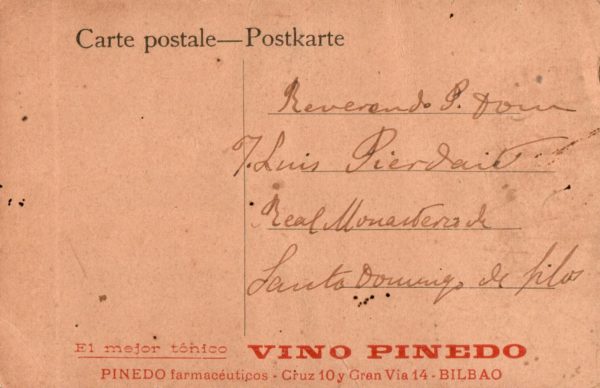 Carte postale—Postkarte
Reverendo P. Dom
Luis Pierdait
Real Monasterio de
Santo Domingo de Silos
El mejor tónico VINO PINEDO
PINEDO farmacéuticos - Cruz 10 y Gran Vía 14 - BILBAO